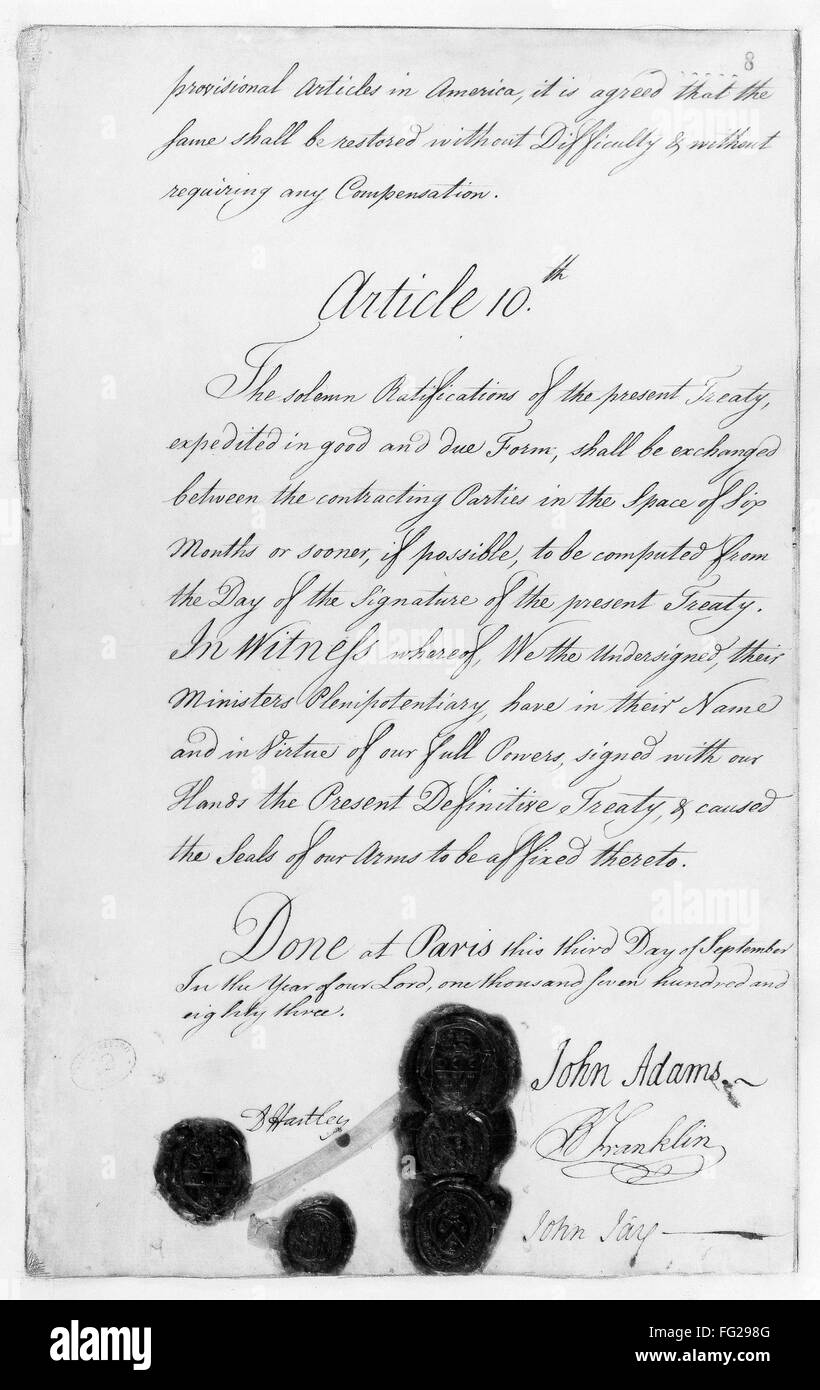 8
provisional Articles in America, it is agreed that the
same shall be restored without Difficulty & without
requiring any Compensation.
Article 10.th
The solemn Ratifications of the present Treaty,
expedited in good and due Form, shall be exchanged
between the contracting Parties in the Space of Six
Months or sooner, if possible, to be computed from
the Day of the Signature of the present Treaty.
In Witness whereof, We the Undersigned, their
Ministers Plenipotentiary, have in their Name
and in Virtue of our full Powers, signed with our
Hands the Present Definitive Treaty, & caused
the Seals of our Arms to be affixed thereto.
Done at Paris this third Day of September
In the Year of our Lord, one thousand seven hundred and
eighty three.
John Adams.
D Hartley
B Franklin
John Jay
alamy
alamy
alamy
alamy stock photo
FG298G
www.alamy.com